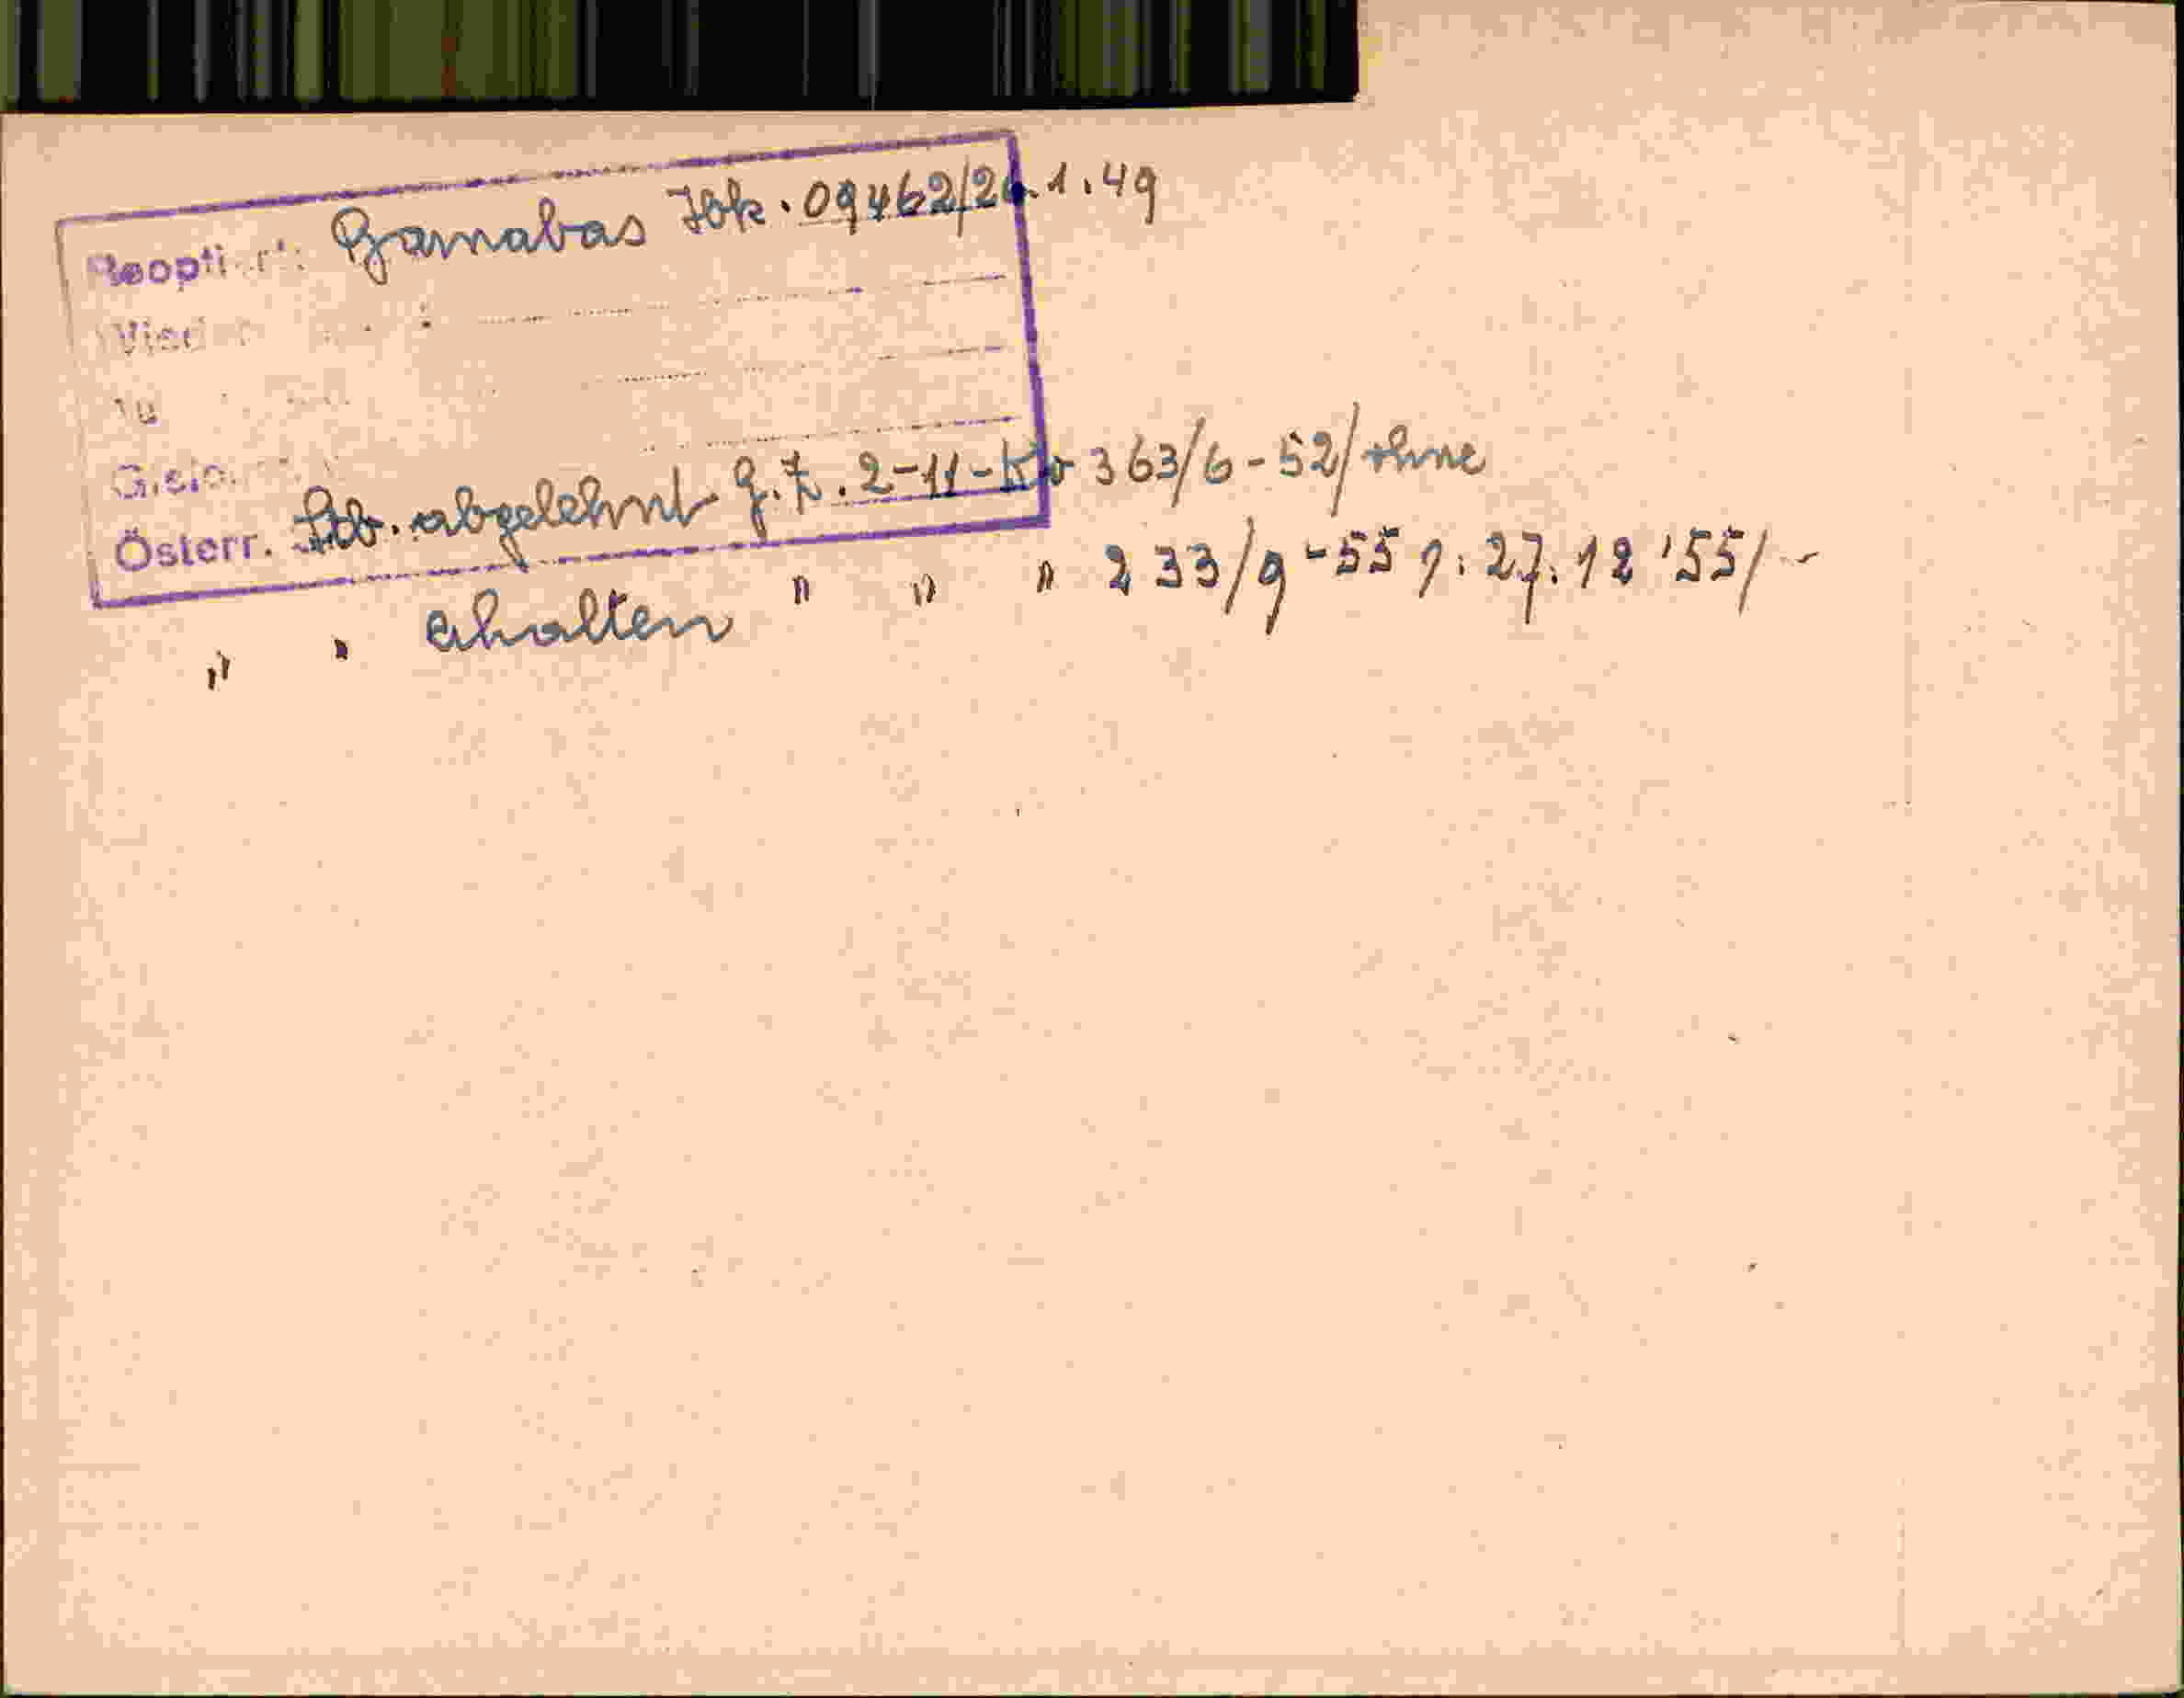 Reoptiert: Barnabas Ibk. 09462/26.1.49
Österr. Stb. abgelehnt g.Z. 2-11- 363/6-52/ohne
" " erhalten " " " 233/9-55 v. 27.12'55/-